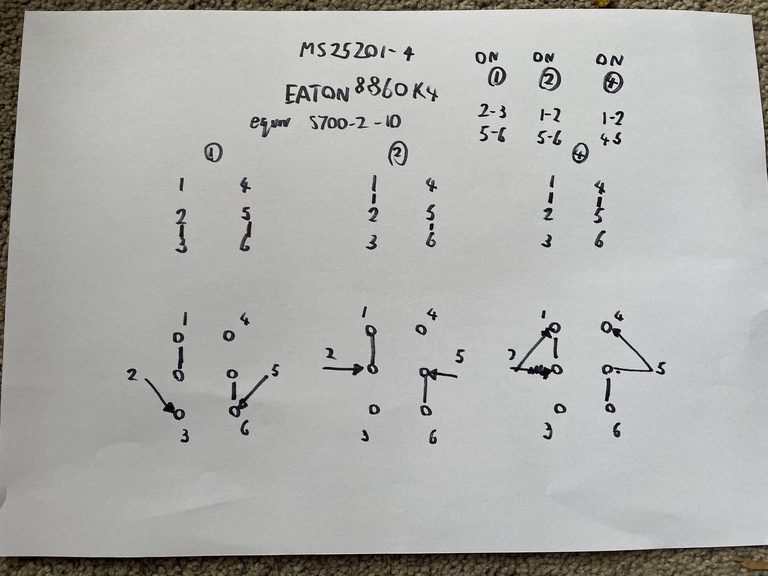 MS25201-4
EATON 8860K4
equiv S700-2-10
ON ON ON
① ② ④
2-3 1-2 1-2
5-6 5-6 4-5
① ② ④
1 4 1 4 1 4
2 5 2 5 2 5
3 6 3 6 3 6
1 4 1 4 1 4
2 5 2 5 2 5
3 6 3 6 3 6